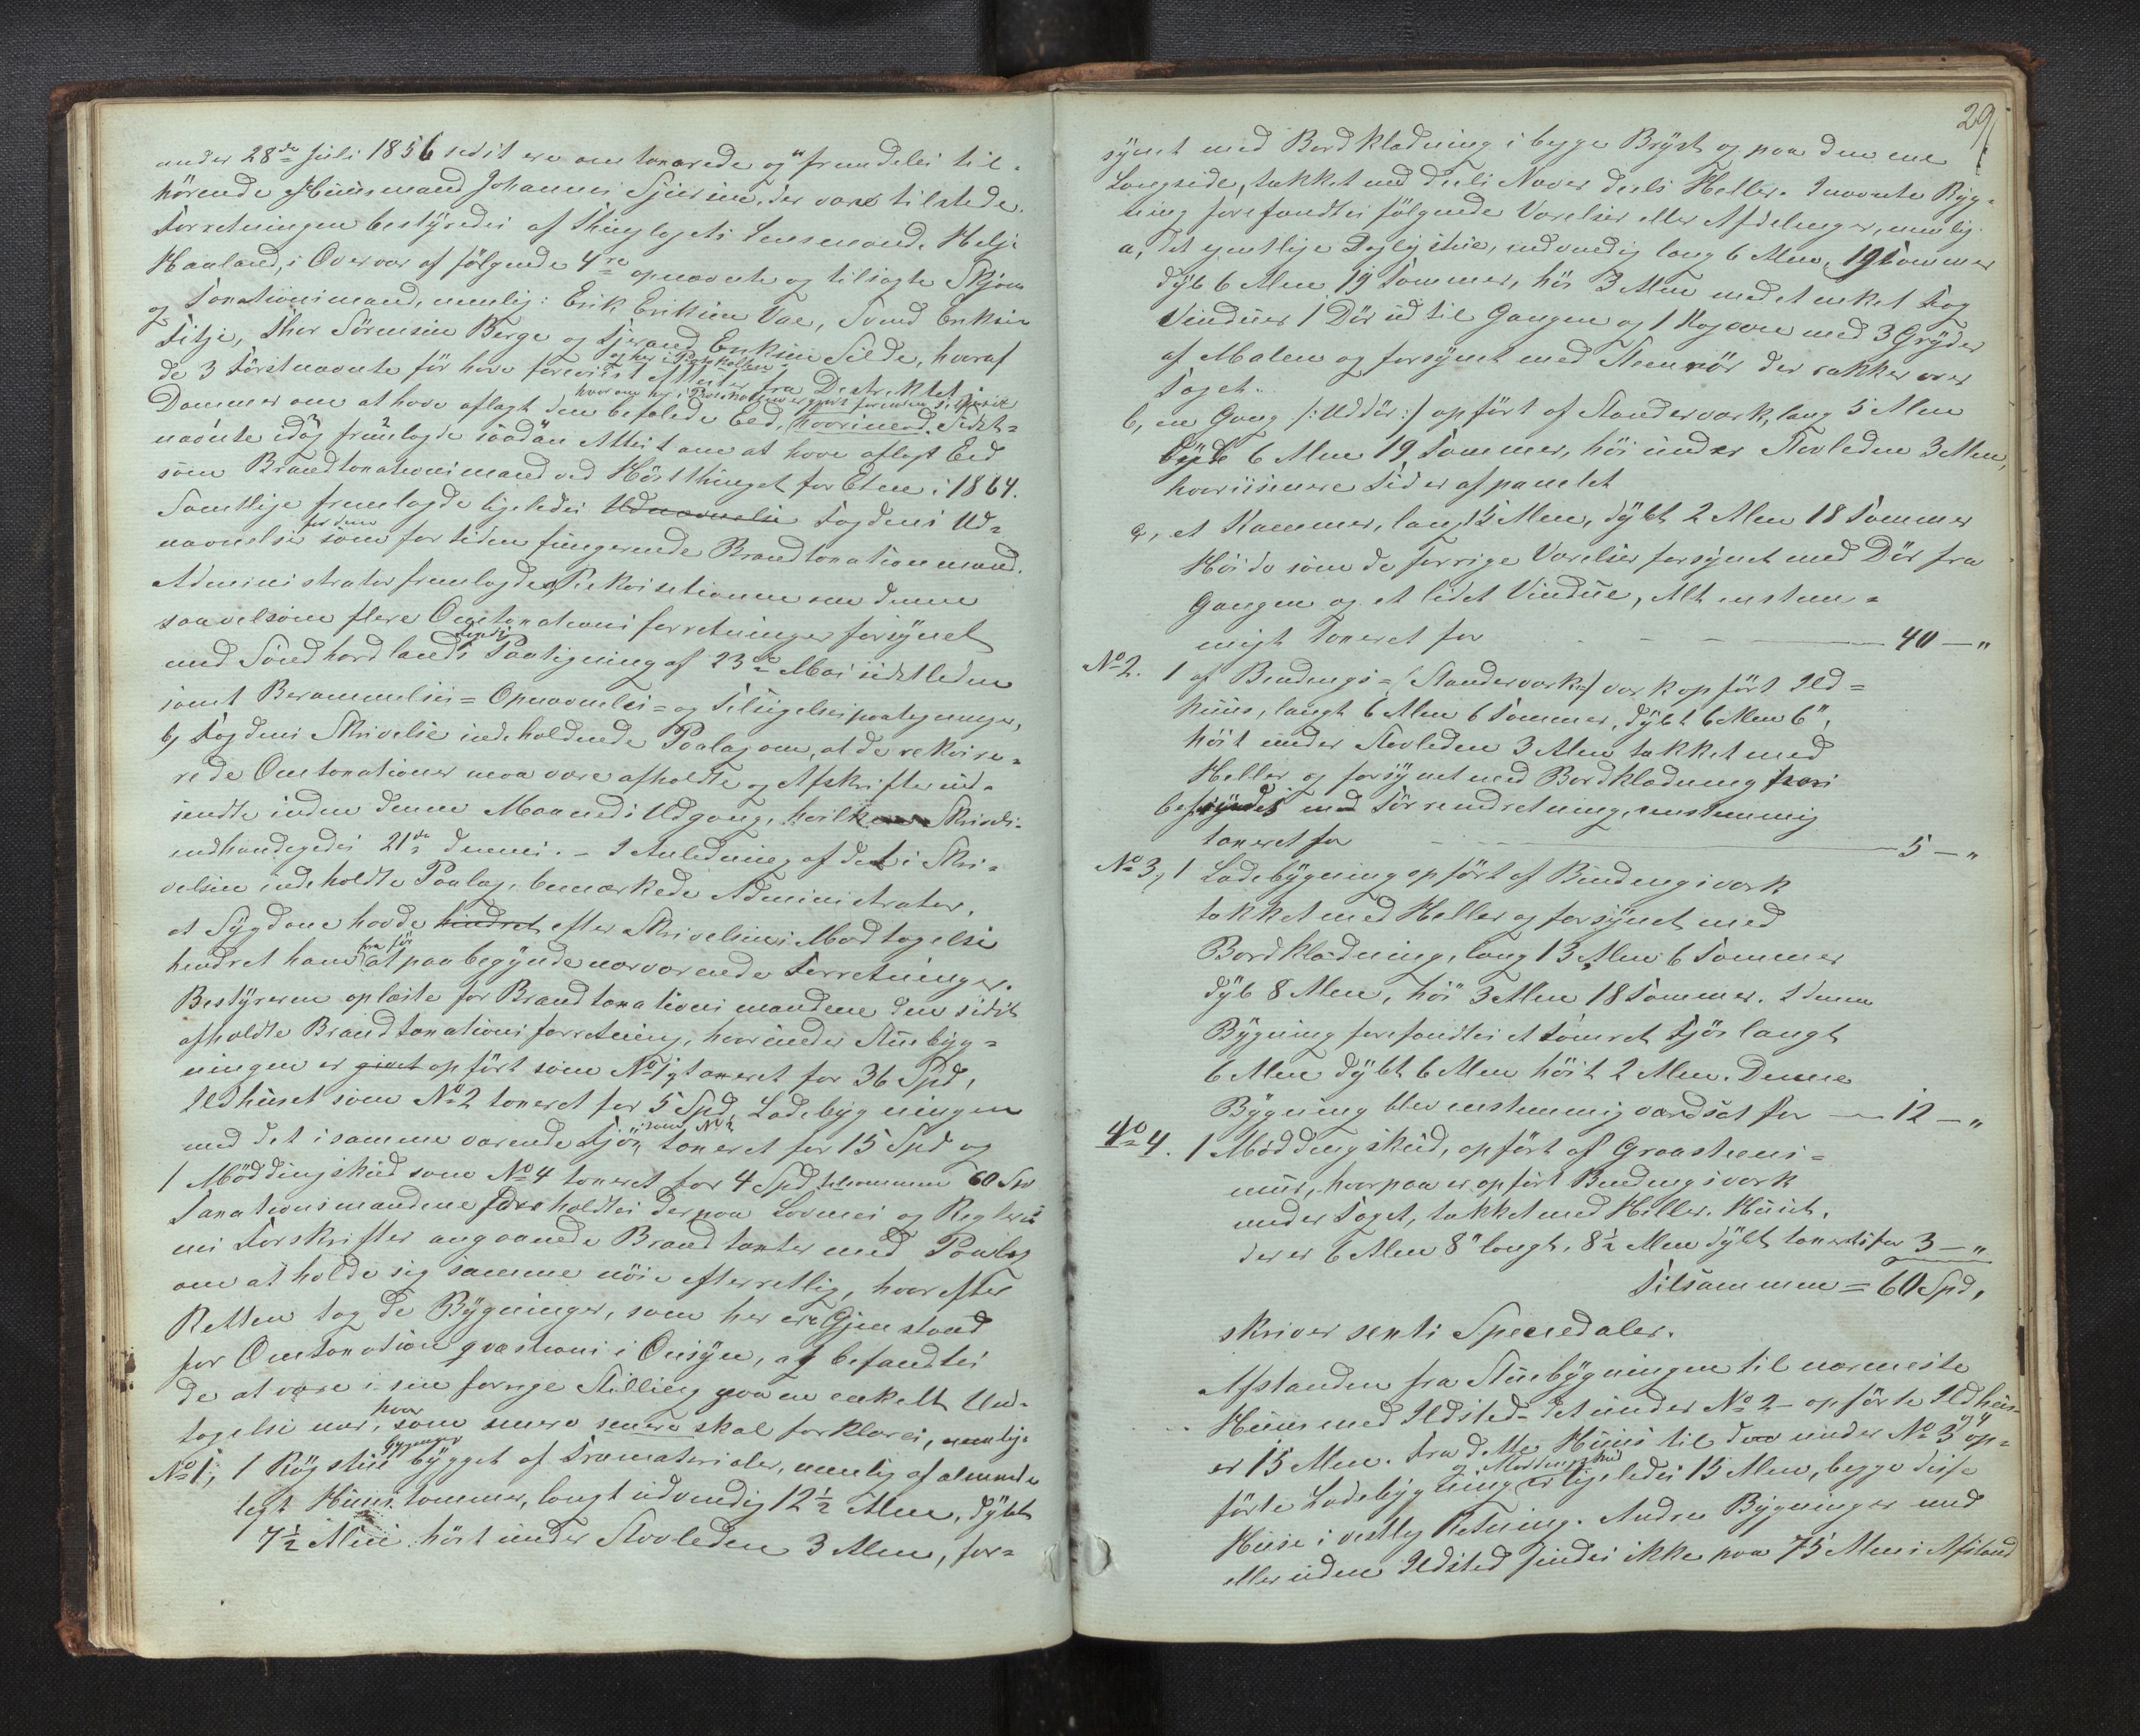 under 28de Juli 1856 sidst ere omtaxerede og fremdeles til-
hörende Huusmand Johannes Sjursen, der vare tilstede.
Forretningen bestyredes af Thinglagets Lensmand, Helje
Haaland, i Overvær af fölgende 4re opnævnte og tilsagte Skjöns
og Taxationsmænd, nemlig: Erik Eriksen Vae, Svend Eriksen
Fitje, Thor Sörensen Berge og Tjerand Eriksen Silde, hvoraf
de 3 Förstnævnte för have foreviist Attester fra Destriktets
og her i Protokollen
Dommer om at have aflagt den befalede Eed, hvorimod Sidst-
hvorom her i Protokollen er gjort
nævnte idag fremlagde saadan Attest om at have aflagt Eed
som Brandtaxationsmand ved Höstthinget for Etne i 1864.
Samtlige fremlagde ligeledes Udnævnelse Fogdens Ud-
nævnelse for dem som for tiden fungerende Brandtaxationsmænd.
Administrator fremlagde a, Rekvisitionen om denne
saavelsom flere Omtaxationsforretninger forsynet
med Söndhordlands Paategning af 23de Mai sidstleden
samt Berammelses= Opnævnelses= og Tilsigelsespaategninger,
b, Fogdens Skrivelse indeholdende Paalag om, at de rekvire-
rede Omtaxationer maa være afholdte og Afskrifter ud-
sendte inden denne Maaneds Udgang, hvilken Skrivelse
indhændigedes 21de dennes. – I Anledning af det i Skri-
velsen indeholdte Paalag, bemærkede Administrator,
at Sygdom havde hindret efter Skrivelsens Modtagelse
hindret ham fra för at paabegynde nærværende Forretninger.
Bestyreren oplæste for Brandtaxationsmændene den sidst
afholdte Brandtaxationsforretning, hvorunder Stuebyg-
ningen er givet opfört som No 1, taxeret for 36 Spd,
Ildhuset som No 2 taxeret for 5 Spd, Ladebygningen
med det i samme værende Fjös, som No 3 taxeret for 15 Spd og
1 Möddingskud som No 4 taxeret for 4 Spd, tilsammen 60 Spd
Taxationsmændene foreholdtes derpaa Lovenes og Reglerne-
nes Forskrifter angaaende Brandtaxter med Paalæg
om at holde sig samme nöie efterrettelig, hvorefter
Retten tog de Bygninger, som her ere Gjenstand
for Omtaxation qvæstionis i Öiesyn, og befandtes
de at være i sin forrige Stilling paa en enkelt Und-
tagelse nær, hvor som senere senere skal forklares, nemlig:
No 1, 1 Rögstue bygning bygget af Træmaterialer, nemlig af alminde-
ligt Huustommer, langt udvendig 12½ Alen, dybt
7½ Alen höit under Stavleden 3 Alen, for-
29
synet med Bordklædning i begge Bryst og paa den ene
Langside, tækket med deels Næver deels Heller. I nævnte Byg-
ning forefandtes fölgende Værelser eller Afdelinger, nemlig:
a, det egentlige Dagligstue, indvendig lang 6 Alen, 19 Tommer
dyb 6 Alen 19 Tommer, höi 3 Alen med et enket Fag
Vinduer 1 Dör ud til Gangen og 1 Kogovn med 3 Gryder
af Malm og forsynet med Steenrör der rækker over
Taget.
b, en Gang /: Uddör :/ opfört af Standerværk, lang 5 Alen
dyb 6 Alen 19 Tommer, höi under Stavleden 3 Alen,
hvoriisinere Sider af panelet
c, et Kammer, langt 5 Alen, dybt 2 Alen 18 Tommer
Höide som de forrige Værelser forsynet med Dör fra
Gangen og et lidet Vindue, Alt enstem-
migt taxeret for – – – 40 – "
No 2. 1 af Bindings= (Standerværk) værk opfört Ild=
huus, langt 6 Alen 6 Tommer, dybt 6 Alen 6",
höit under Stavleden 3 Alen tækket med
Heller og forsynet med Bordklædning
befindes med Törreindretning, enstemmig
taxeret for – – – 5 – "
No 3, 1 Ladebygning opfört af Bindingsværk
tækket med Heller og forsynet med
Bordklædning, lang 13 Alen 6 Tommer
dyb 8 Alen, höi 3 Alen 18 Tommer. I denne
Bygning forefandtes et tömret Fjös langt
6 Alen dybt 6 Alen höit 2 Alen. Denne
Bygning blev enstemmig værdsat for – 12 – "
No 4. 1 Möddingskud, opfört af Graasteens=
muur, hvorpaa er opfört Bindingsværk
under Taget, tækket med Heller. Huset,
der er 6 Alen 8" langt, 8½ Alen dybt taxertes for 3 – "
Tilsammen = 60 Spd,
skriver sexti Speciedaler.
Afstanden fra Stuebygningen til nærmeste
Huus med Ildsted – det under No 2 – opförte Ildhuus
er 15 Alen. Fra dette Huus til den under No 3 op-
förte Ladebygning og Möddingskud er ligeledes 15 Alen, begge disse
Huse i vestlig Retning. Andre Bygninger med
eller uden Ildsted findes ikke paa 75 Alens Afstand